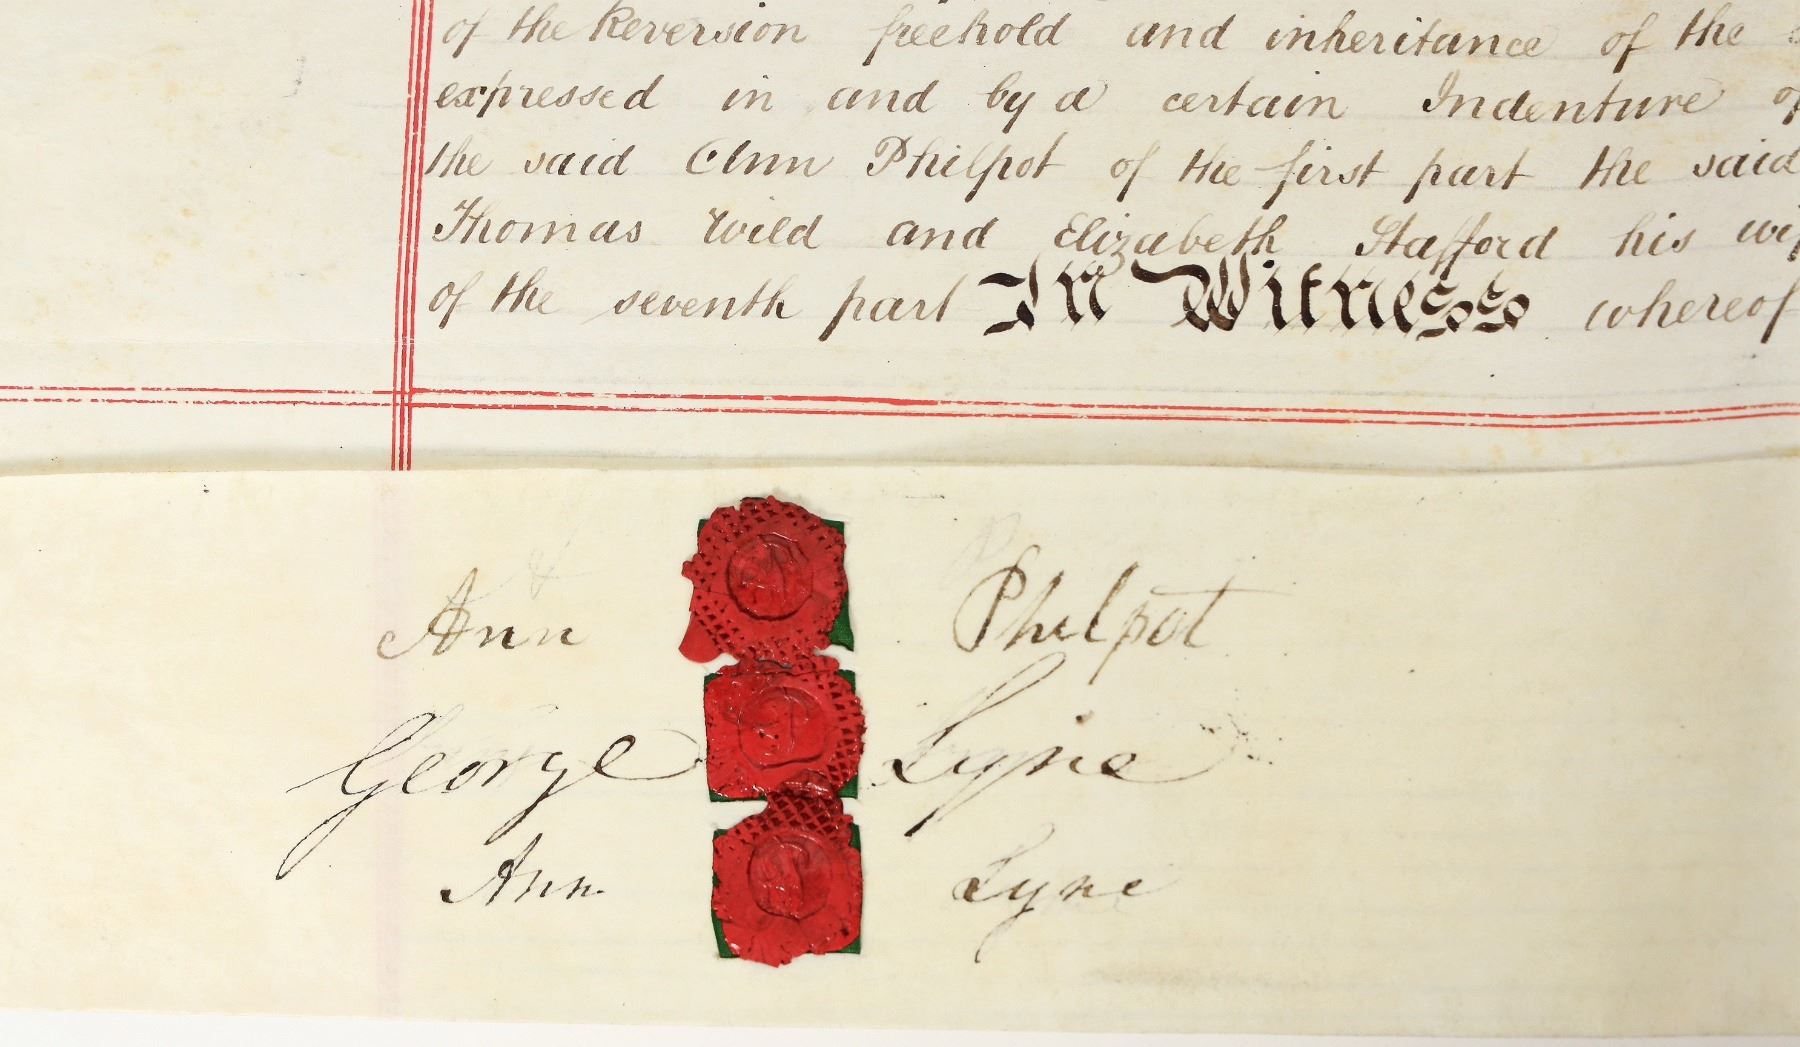 of the Reversion freehold and inheritance of the
expressed in and by a certain Indenture of
the said Ann Philpot of the first part the said
Thomas Wild and Elizabeth Stafford his wif
of the seventh part In Witness whereof
Ann Philpot
George Lyne
Ann Lyne